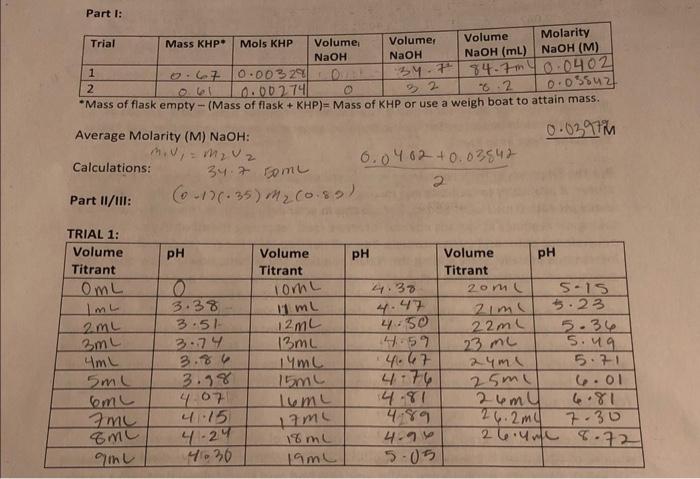 Part I:
Trial Mass KHP* Mols KHP Volumeᵢ NaOH Volumef NaOH Volume NaOH (mL) Molarity NaOH (M)
1 0.67 0.00328 0 34.7 84.7mL 0.0402
2 0.61 0.00274 0 32 8.2 0.03542
*Mass of flask empty – (Mass of flask + KHP)= Mass of KHP or use a weigh boat to attain mass.
Average Molarity (M) NaOH: 0.0397M
M₁V₁ = M₂V₂
Calculations: 34.7 50mL 0.0402 + 0.03842
2
(0.1)(.35) M₂(0.85)
Part II/III:
TRIAL 1:
Volume Titrant pH Volume Titrant pH Volume Titrant pH
0mL 0 10mL 4.38 20mL 5.15
1mL 3.38 11mL 4.47 21mL 5.23
2mL 3.51 12mL 4.50 22mL 5.36
3mL 3.74 13mL 4.59 23mL 5.49
4mL 3.86 14mL 4.67 24mL 5.71
5mL 3.98 15mL 4.76 25mL 6.01
6mL 4.07 16mL 4.81 26mL 6.81
7mL 4.15 17mL 4.89 26.2mL 7.30
8mL 4.24 18mL 4.96 26.4mL 8.72
9mL 4.30 19mL 5.05